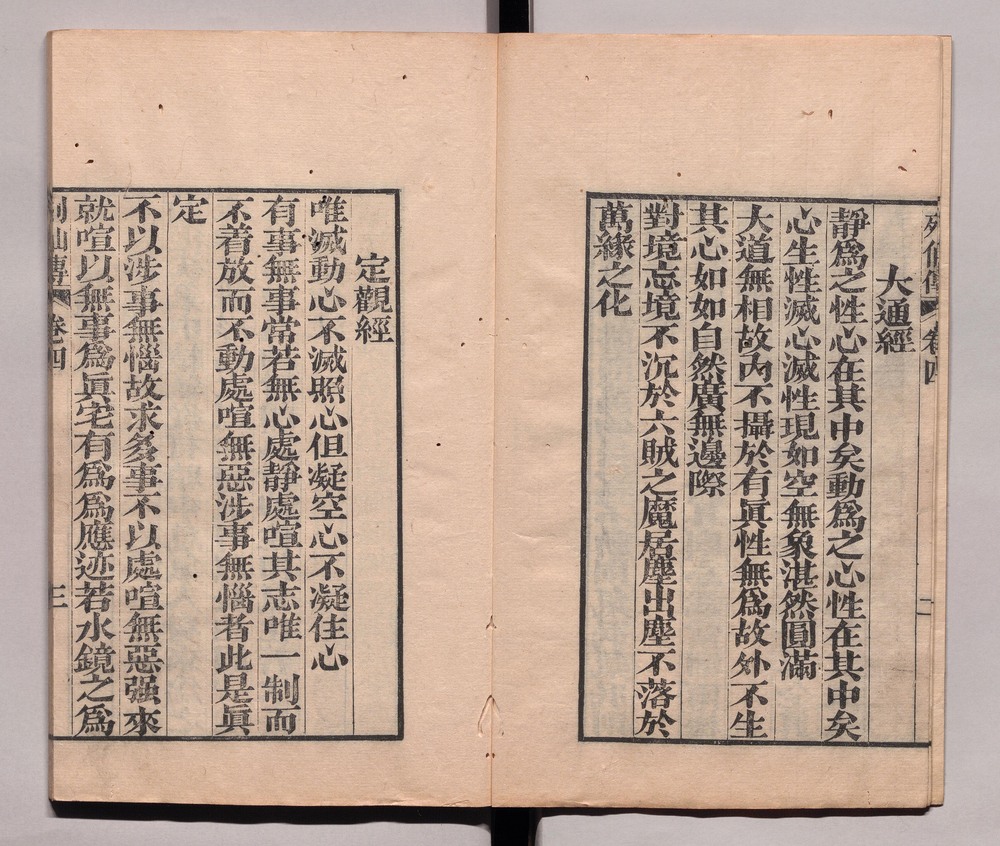 列仙傳 卷四 二
大通經
靜爲之性心在其中矣動爲之心性在其中矣
心生性滅心滅性現如空無象湛然圓滿
大道無相故內不攝於有眞性無爲故外不生
其心如如自然廣無邊際
對境忘境不沉於六賊之魔居塵出塵不落於
萬緣之化
定觀經
唯滅動心不滅照心但凝空心不凝住心
有事無事常若無心處靜處喧其志唯一制而
不着放而不動處喧無惡涉事無惱者此是眞
定
不以涉事無惱故求多事不以處喧無惡强來
就喧以無事爲眞宅有爲爲應迹若水鏡之爲
列仙傳 卷四 三